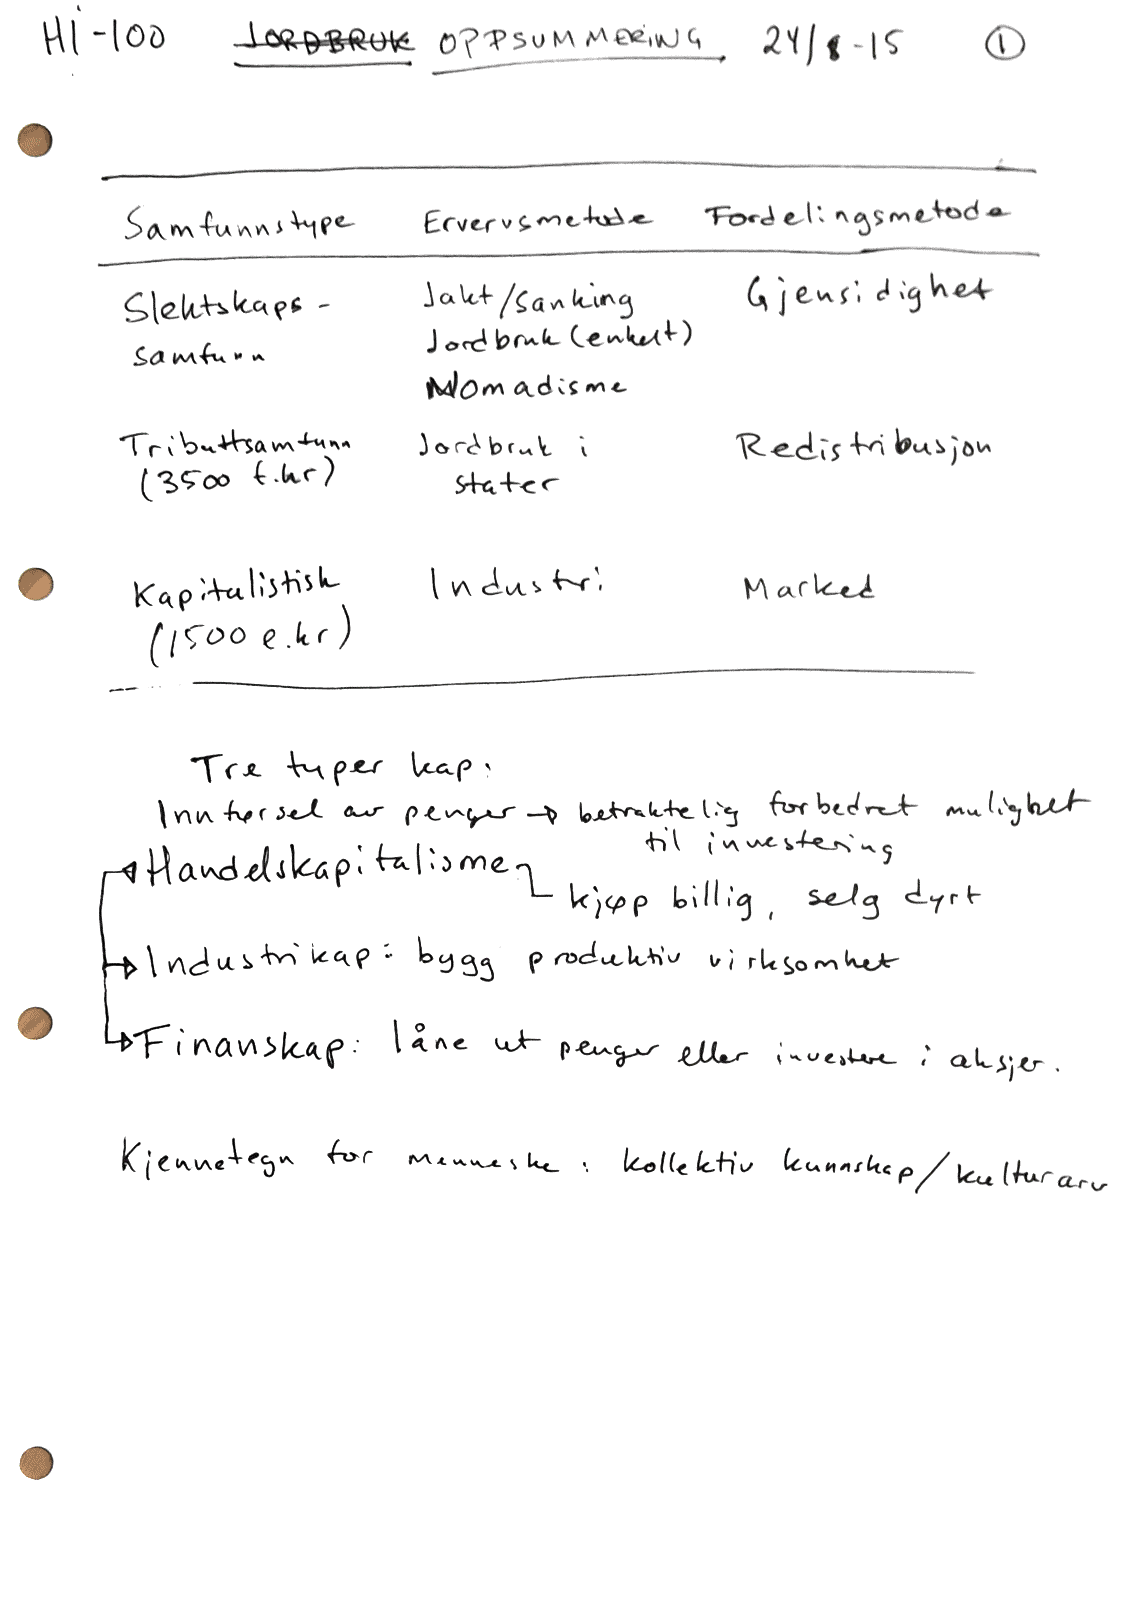 HI-100 JORDBRUK OPPSUMMERING 24/8-15 1
Samfunnstype Ervervsmetode Fordelingsmetode
Slektskaps- Jakt/Sanking Gjensidighet
samfunn Jordbruk (enkelt)
Nomadisme
Tributtsamfunn Jordbruk i Redistribusjon
(3500 f.kr) stater
Kapitalistisk Industri Marked
(1500 e.kr)
Tre typer kap:
Innførsel av penger → betraktelig forbedret mulighet
til investering
Handelskapitalisme
kjøp billig, selg dyrt
Industrikap: bygg produktiv virksomhet
Finanskap: låne ut penger eller investere i aksjer.
Kjennetegn for menneske: kollektiv kunnskap/kulturarv